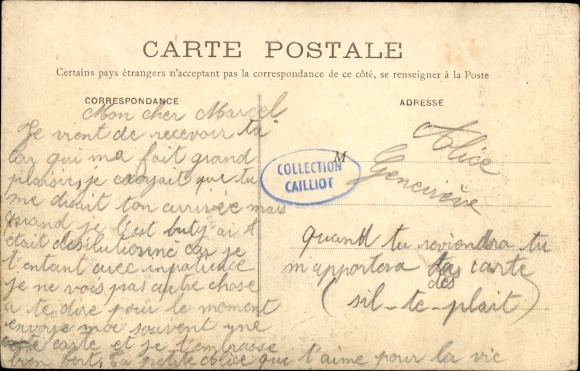 CARTE POSTALE
Certains pays étrangers n'acceptant pas la correspondance de ce côté, se renseigner à la Poste
CORRESPONDANCE
Mon cher Marcel
Je vient de recevoir ta
car qui ma fait grand
plaisir, je croyait que tu
me disait ton arrivée mais
quand je
était car je
t'entant avec inpatience
je ne vois pas autre chose
a te dire pour le moment
envoye moi souvent une
carte et je t'embrasse
bien fort, ta petite Alice que t'aime pour la vie
COLLECTION
CAILLIOT
ADRESSE
M
Alice
Genevière
quand tu reviondra tu
m'apportera tas carte
des
(sil-te-plait)